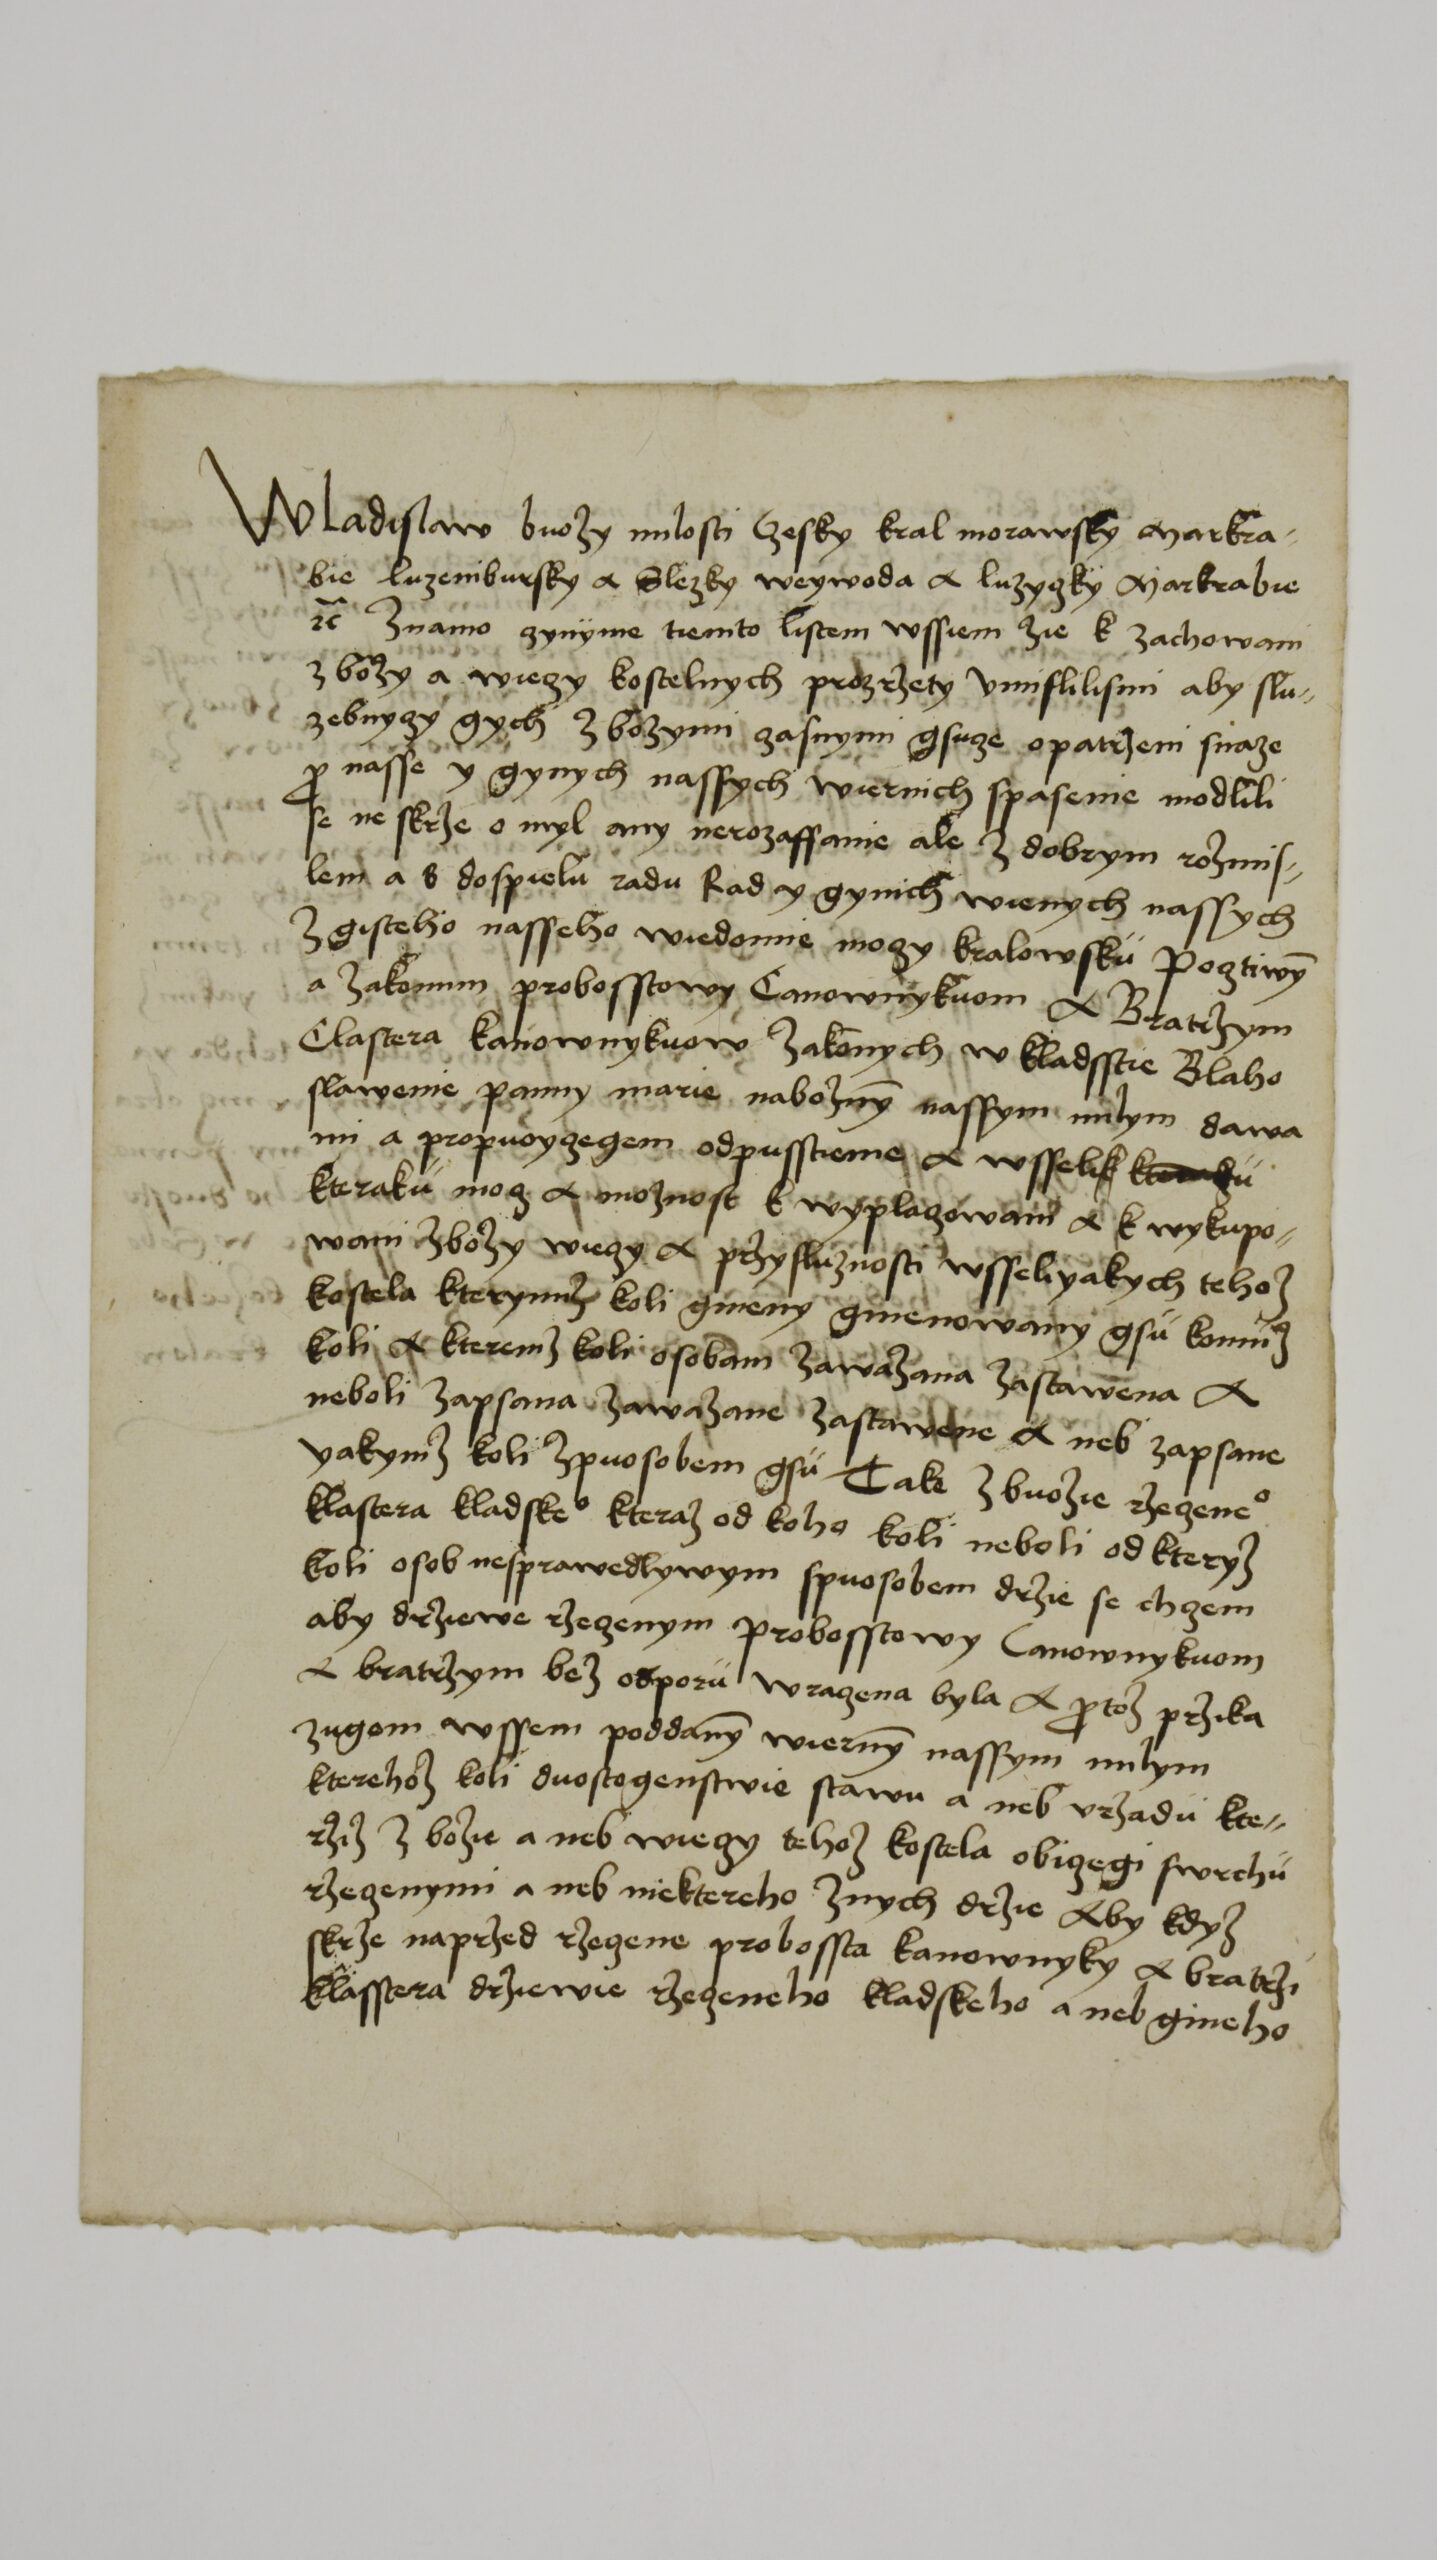 Wladislaw buozy milosti Czesky kral morawsky Markra-
bie luzembursky a Slezky weywoda a luzyczky Markrabie
rc Znamo czynyme tiemto listem wssiem Zie k zachowani
zbozy a wieczy kostelnych prozrzety Umislilismi aby slu-
zebnyczy gych zbozymi czasnymi gsucze opatrzeni snaze
pro nasse y gynych nassych wiernich spasenie modlili
se ne skrze omyl any nerozaffanie ale z dobrym rozmis-
lem a s dospielu radu Rad y gynich wienych nassych
Z gisteho nasseho wiedomie moczy kralowsku Pocztiwym
a zakonnm probosstowy Canownykuom a Bratrzym
Clastera kanownykuow zakonych w kladsstie Blaho
slawenie panny marie naboznym nassym milym dawa
mi a propuoyczegem odpusstieme a wsselik kteraku
kteraku mocz a moznost k wyplaczowani a k wykupo-
wani zbozy wieczy a przysluznosti wsseliyakych tehoz
kostela kterymiz koli gmeny gmenowany gsu komuz
koli a kteremz koli osobam zawazana zastawena a
neboli zapsana zawazane zastawene a neb zapsane
yakymz koli zpuosobem gsu Take zbuozie rzeczeneo
klastera kladskeo kteraz od koho koli neboli od kteryz
koli osob nesprawedlywym spuosobem drzie se chczem
aby drziewe rzeczenym Probosstowy Canownykuom
a bratrzym bez odporu wraczena byla a protoz przika
zugem wssem poddanym wiernym nassym milym
kterehoz koli duostogenstwie stawu a neb urzadu kte-
rziz zbozie a neb wieczy tehoz kostela obiczegi swrchu
rzeczenymi a neb niektereho znych drzie Aby kdyz
skrze naprzed rzeczene probossta kanownyky a bratrzi
klasstera drziewie rzeczeneho kladskeho a neb gineho